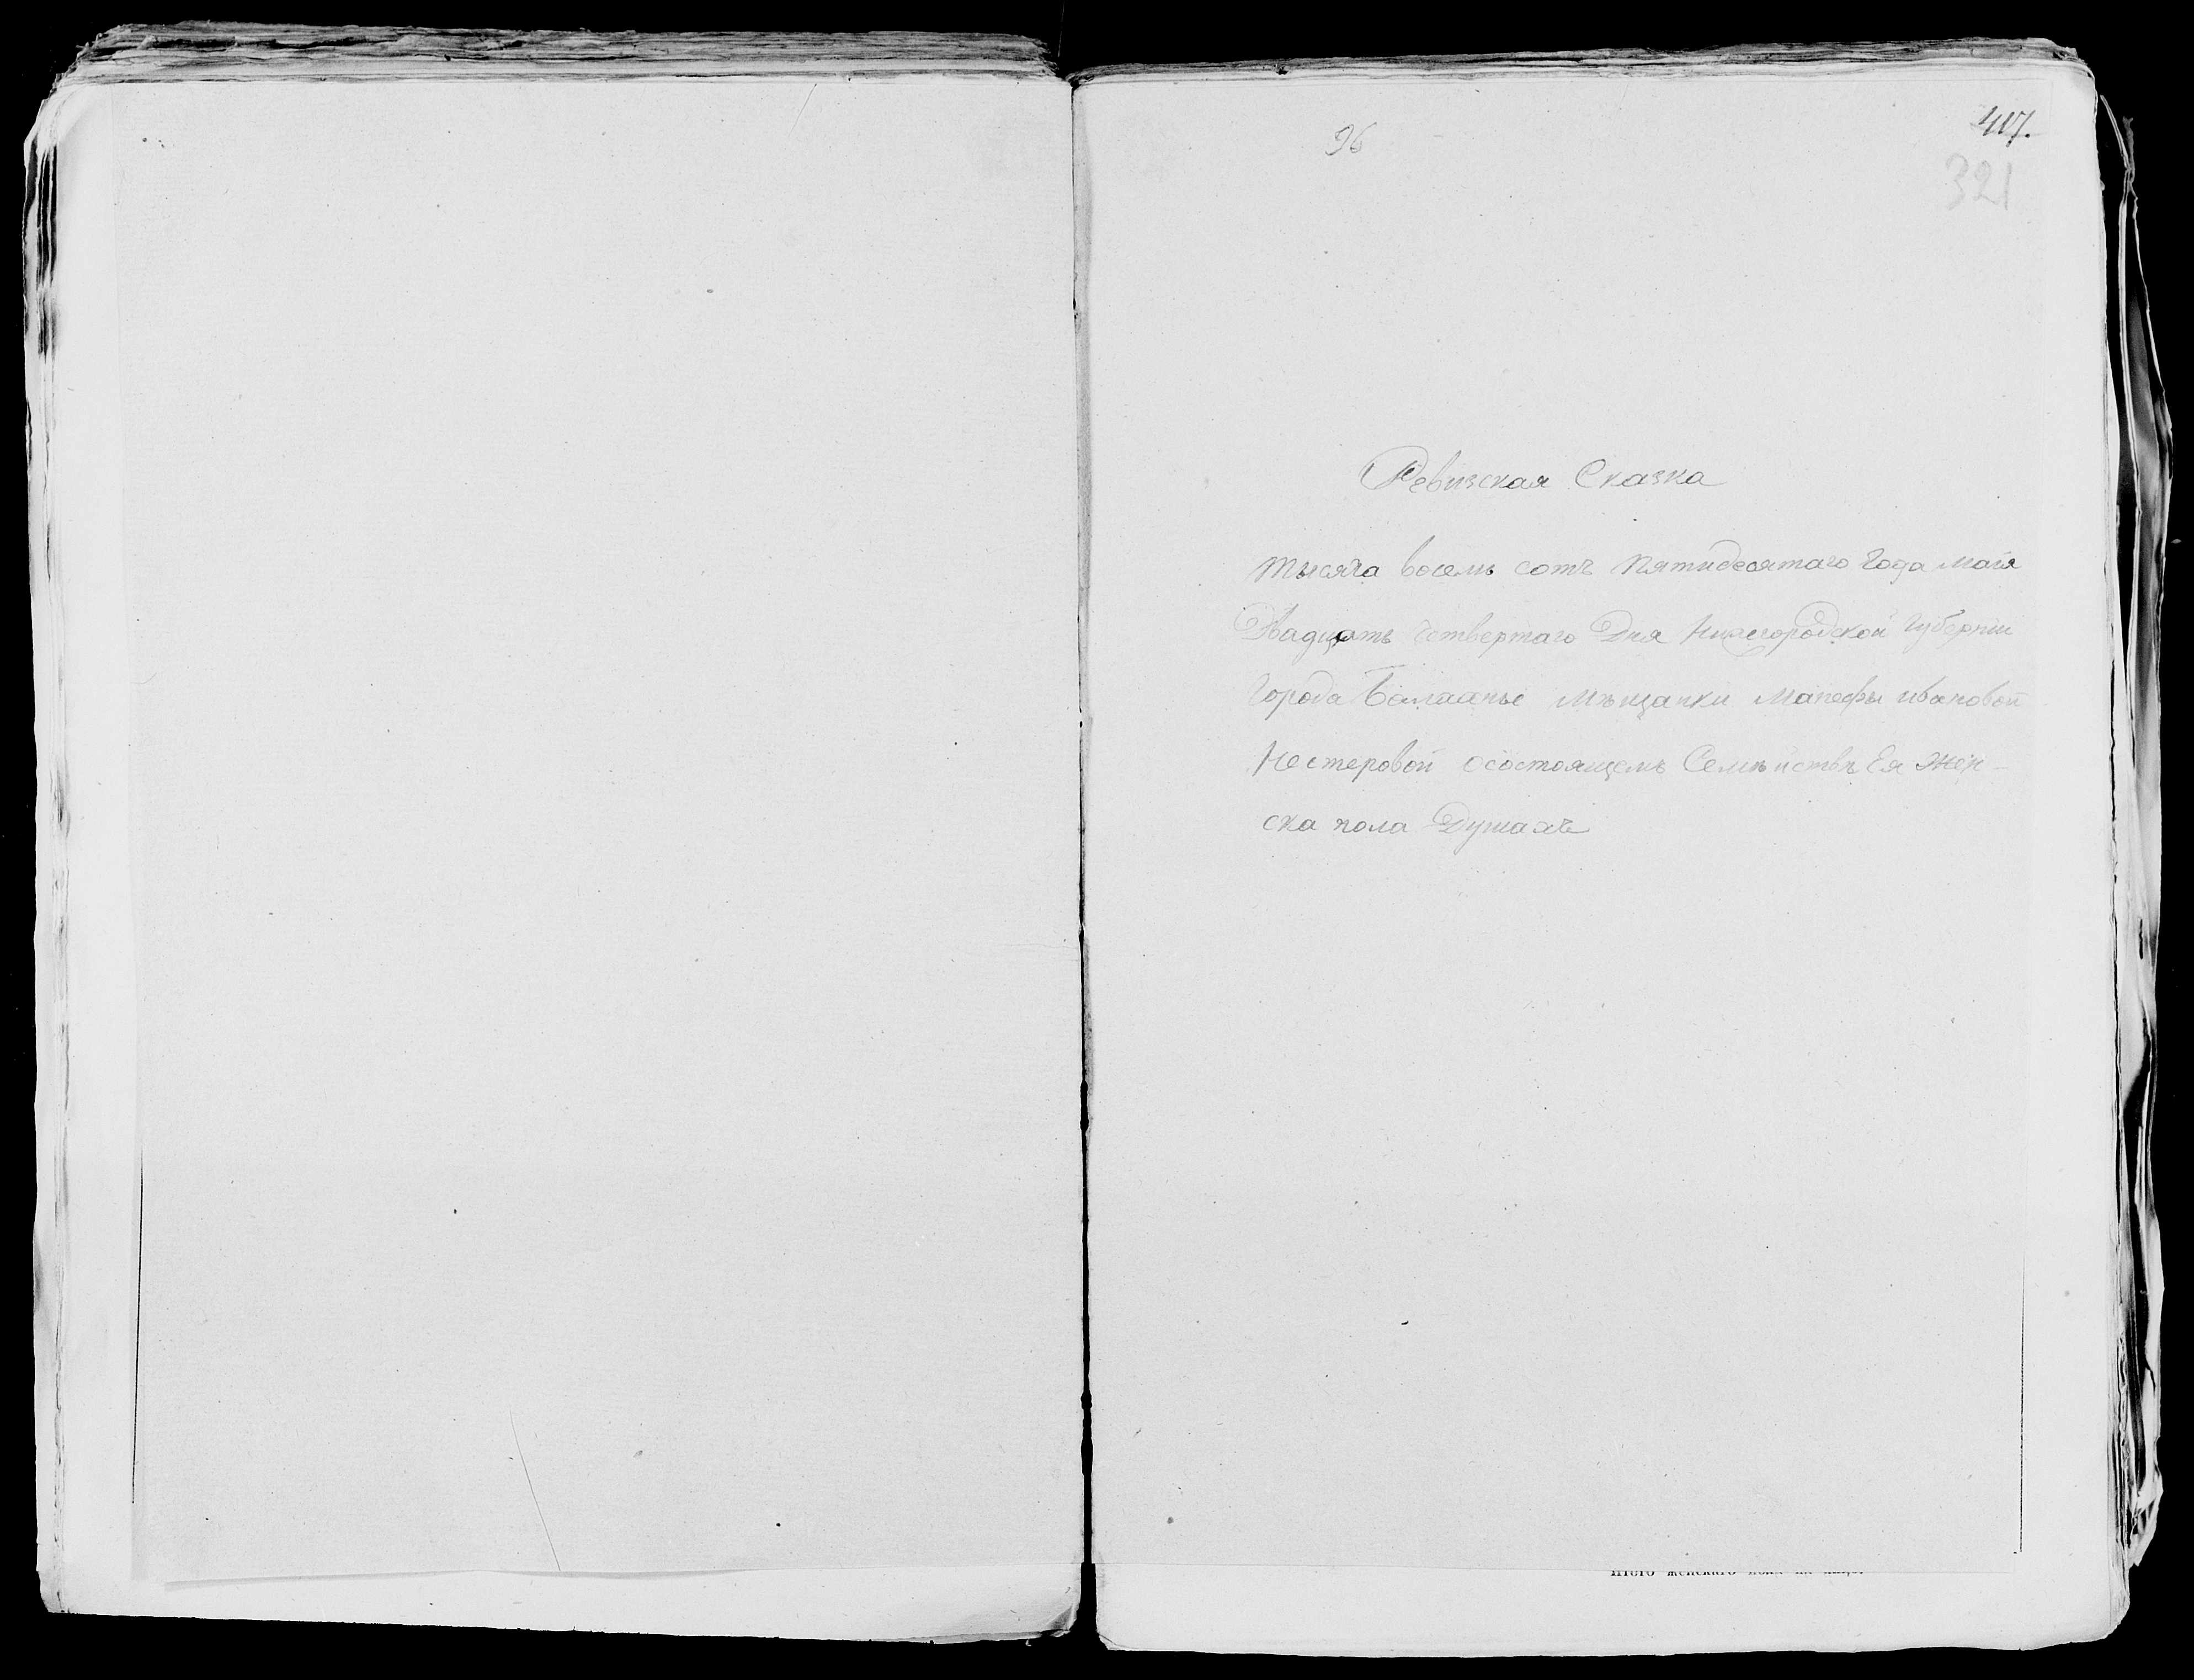 96
417.
321
Ревизская Сказка
тысяча восемь сотъ Пятидесятаго Года Маiя
Двадцать Четвертаго Дня Нижегородской Губернiи
Города Балахны Мѣщанки Манефы ивановой
Нестеровой осостоящемъ Семѣйствѣ Ея Жен-
ска пола Душахъ